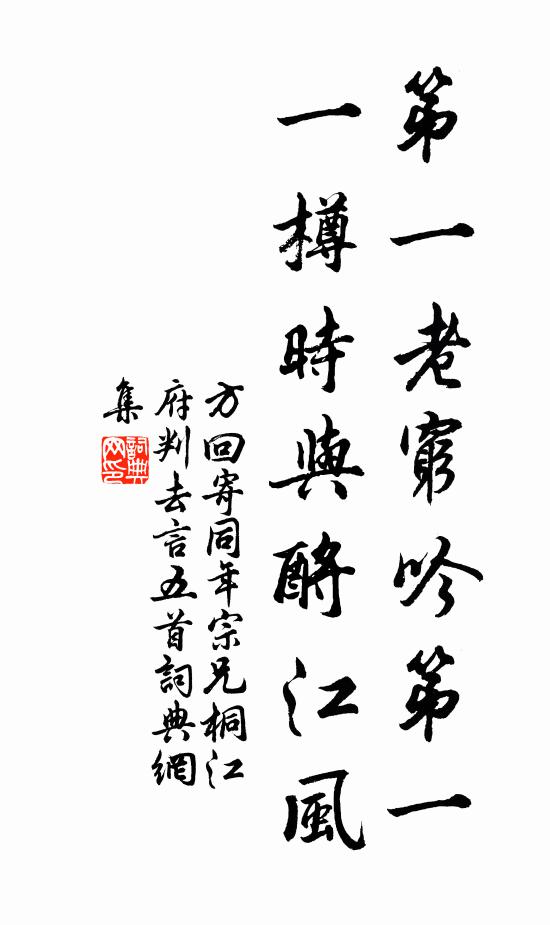 第一老窮吟第一
一樽時與酹江風
方回寄同年宗兄桐江
府判去言五首詞典網
集
詞典
网印